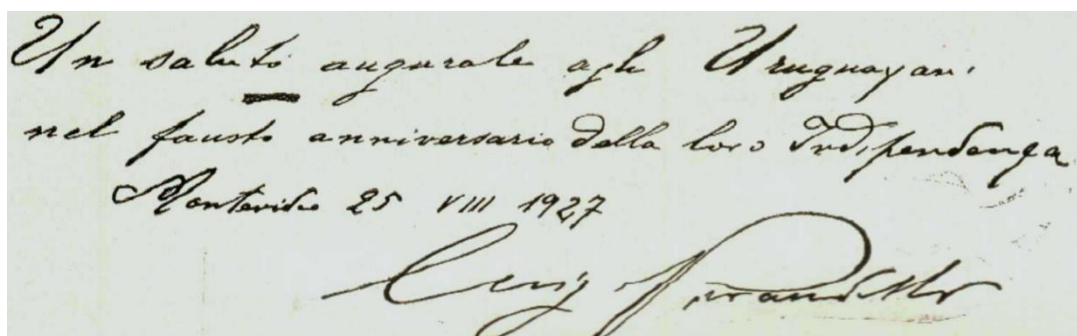 Un saluto augurale agli Uruguayani
nel fausto anniversario della loro Indipendenza
Montevideo 25 VIII 1927
Luigi Pirandello